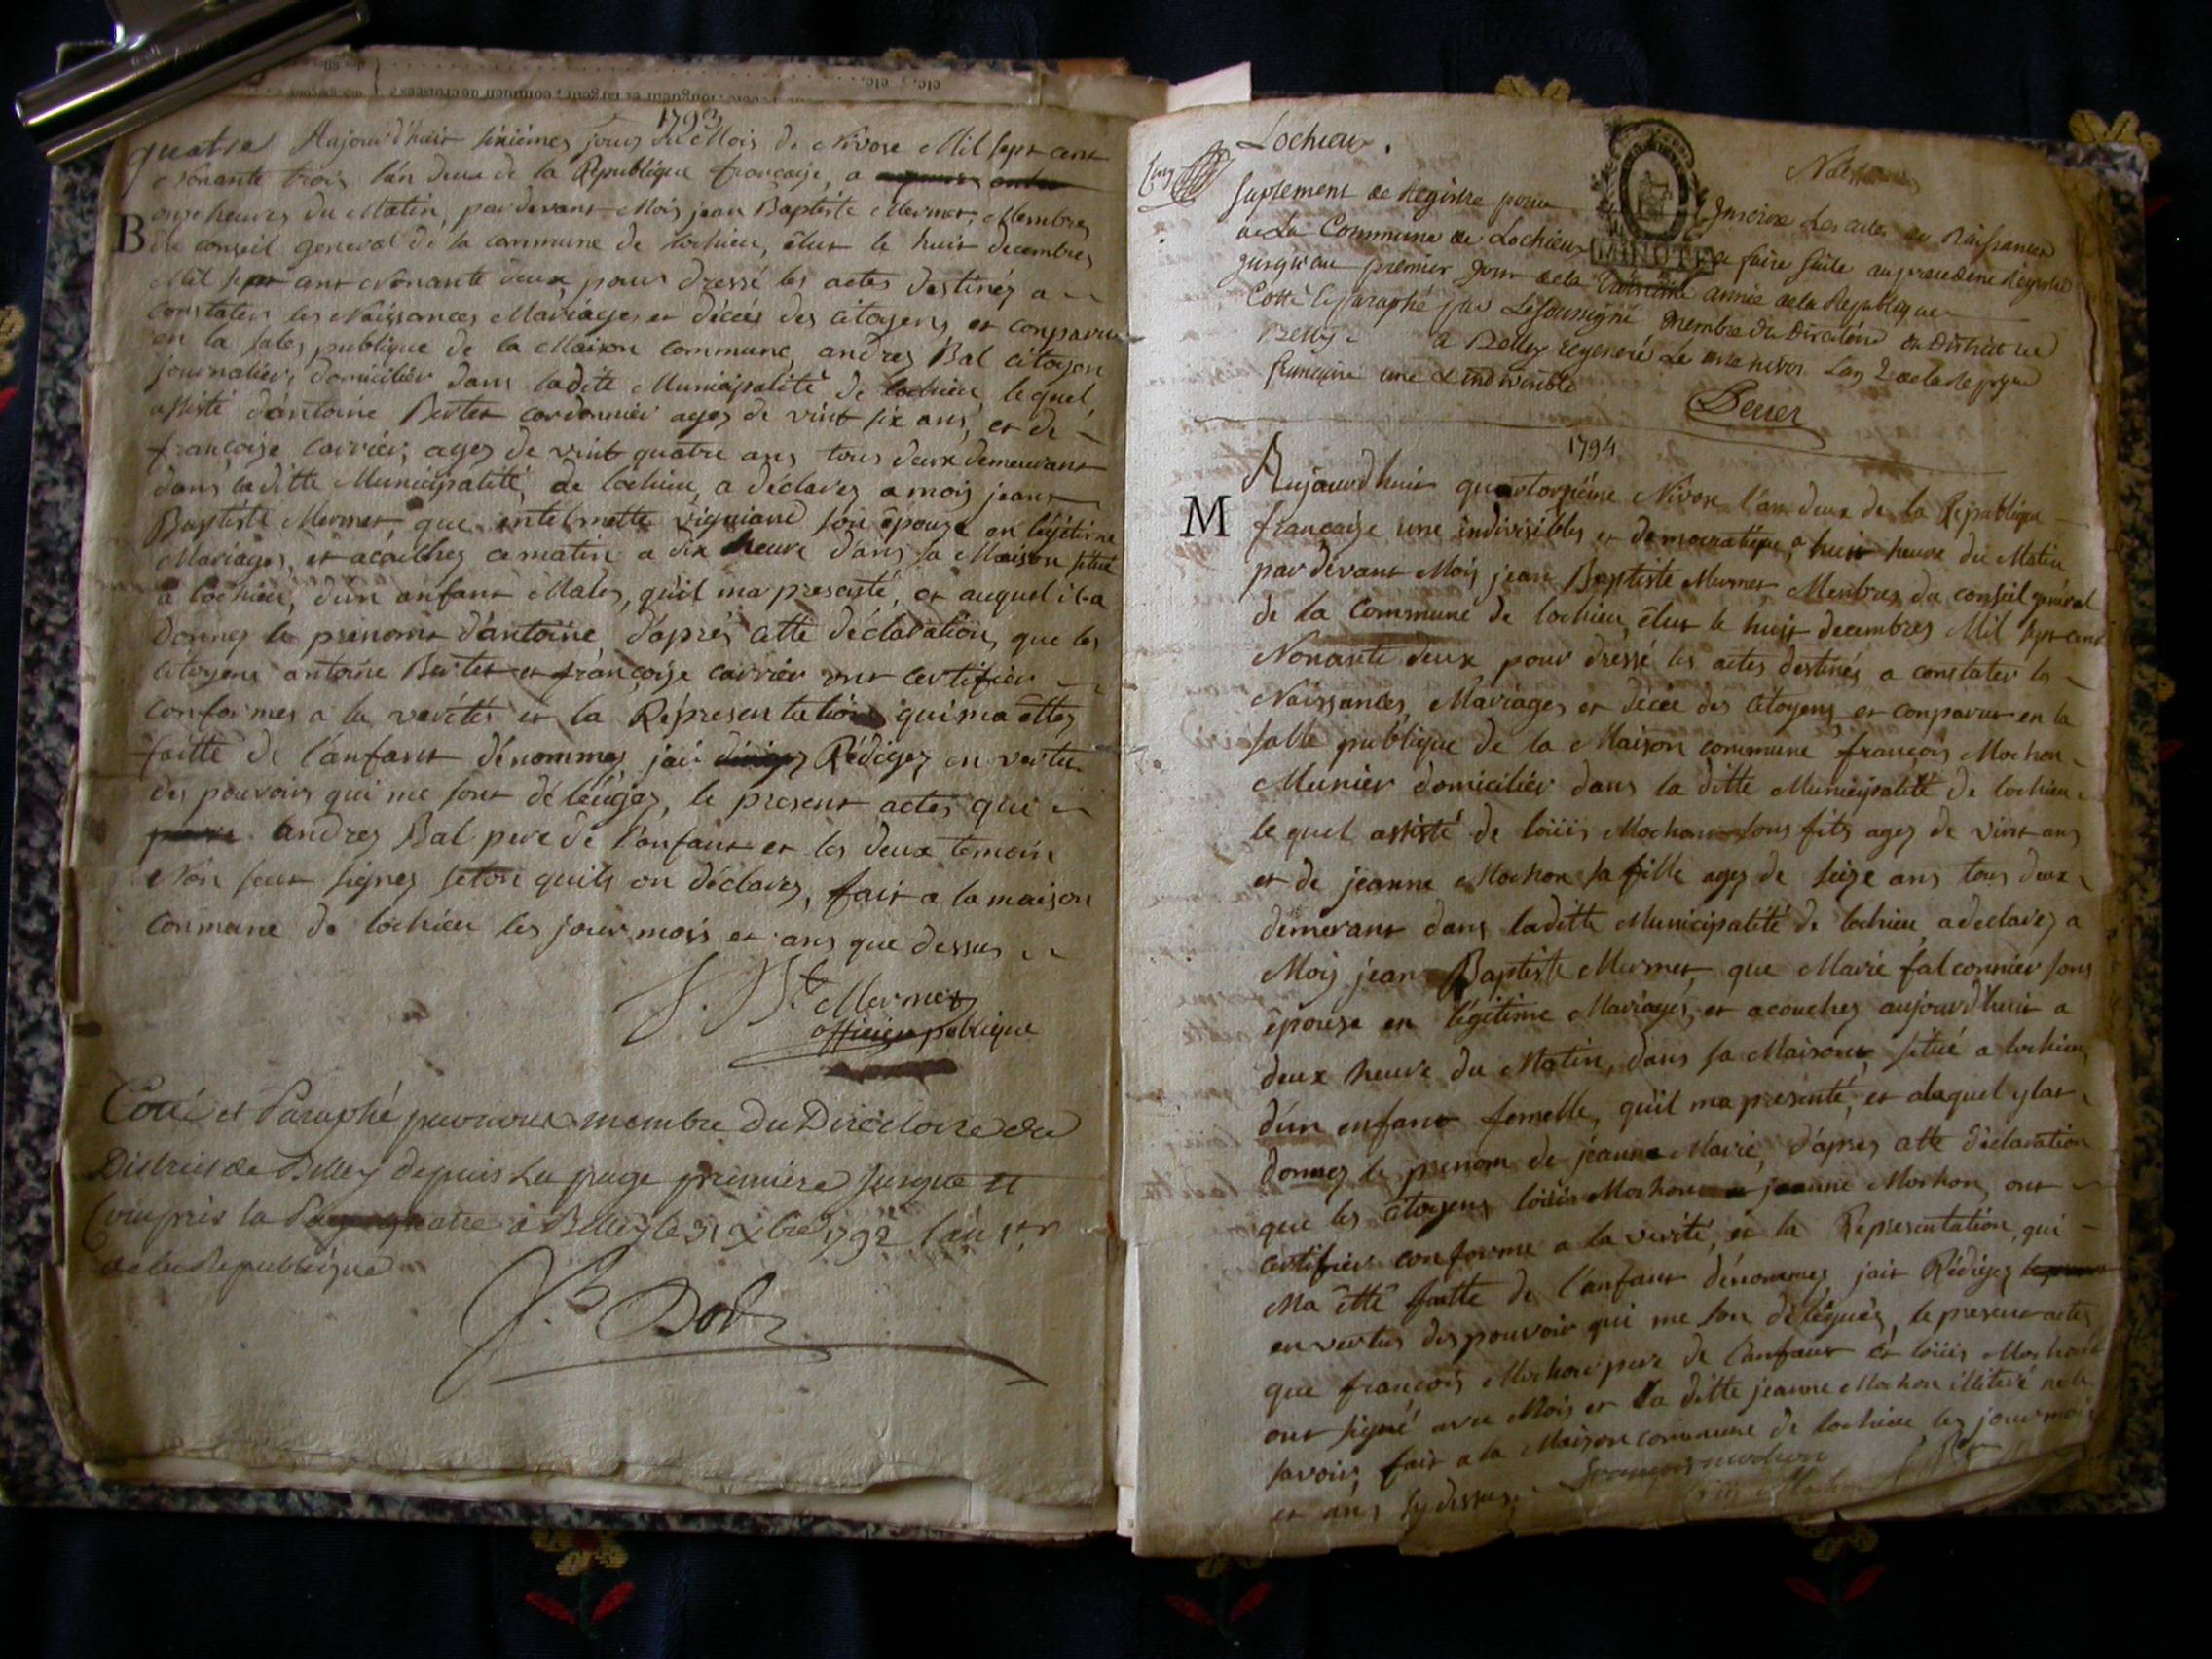 1793
quatre Aujourd'huit sixiémes jours du Mois de Nivose Mil sept cent
Nonante trois l'an deux de la Republique francaise, a
onze heures du Matin, pardevant Mois jean Baptiste Mermet, Membres
B
du conseil general de la commune de lochieu, élut le huit decembres
Mil sept ant Nonante deux, pour dressé les actes destinés a
constater les Naissances Mariages et décés des citoyens, et conparut
en la sales publique de la Maison commune, andrez Bal citoyen
journalier, domicilier dans ladite Municipalité de lochieu, le quel,
assisté d'antoine Bertet cordonnier agez de vint six ans, et de
françoise carrier, agez de vint quatre ans tous deux demeurant
dans laditte Municipalité, de lochieu, a déclarez a mois jeant
Baptiste Mermet, que antelmette viguiand son épouze en légitime
Mariages, et acouchez ce matin a dix heure dans sa Maison situé
a lochieu, d'un anfant Males, qu'il ma presenté, et auquel il a
Donnez le prenoms d'antoine, d'aprés cette déclaration, que les
citoyens antoine Bertet et françoise carrier ont certifier
conformes a la verités et la Représentation qui ma étté
faitte de l'anfant dénommez jai Rédigez en vertu
des pouvoirs qui me sont délégez, le present actes que
andrez Bal pere de l'anfant et les deux temoin
Non sceut signez selon quils on déclarez, fait a la maison
conmune de lochieu les jour mois et ans que dessus
J. Bte Mermet
officier publique
Coté et Paraphé par nous membre du Directoire du
District de Belley depuis La page premiere jusqua et
Compris la Page quatre à Belley le 31 xbre 1792 l'an 1er
de la Republique
J. B Dob
Lochieu.
Cinq
Naissances
MINUTE
Suplement de Registre pour Inscrire Les actes de Naissances
de La Commune de Lochieu a faire suite au precedent Registre
jusqu'au premier jour de la troisieme année de la Republique
Cotté et paraphé par Le soussigné membre du Directoire du District de
Belley a Belley regeneré Le nivos Lan 2 de la Republique
francaise une & indivisible
1794
Aujourdhuit quatorziéme Nivose l'an deux de la Republique
M
francaize une indivisibles et democratique, a huit heure du Matin
par devant Mois jean Baptiste Mermet Menbres du conseil général
de la Commune de lochieu, élut le huit decembres Mil sept cent
Nonante deux pour dressé les actes destinés a constater les
Naissances, Mariages et décée des citoyens et conparut en la
salle publique de la Maison commune françois Mochon
Munier domicilier dans la ditte Municipalité de lochieu
le quel assisté de loüis Mochon sons fils agez de vint ans
et de jeanne Mochon sa fille agez de seize ans tous deux
demerant dans laditte Municipalité de lochieu, a declarez a
Mois jean Baptiste Mermet, que Marie falconnier sons
épouse en légitime Mariages, et acouchez aujourdhuit a
deux heure du Matin, dans sa Maisons, situé a lochieu,
d'un enfant femelle, qu'il ma présenté, et alaquel y lat
donnez le prenom de jeanne Marie, d'apres cette déclaration
que les citoyens loüis Mochon et jeanne Mochon, ont
certifier conforme a la verité, et la Representation, qui
Ma étté faitte de l'anfant dénommez jait Rédigez
en vertus des pouvoir qui me son délégués, le present actes
que françois Mochon pere de l'anfant et loüis Mochon
ont signé avec Mois et la ditte jeanne Mochon illiteré ne le
savoir, fait a la Maison commune de lochieu les jour mois
et ans sy dessus. françois mochon
Mochon